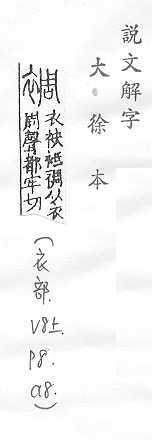 說文解字
大徐本
裯 衣袂祗裯从衣
周聲都牢切
(衣部. V8上. P8. a8.)